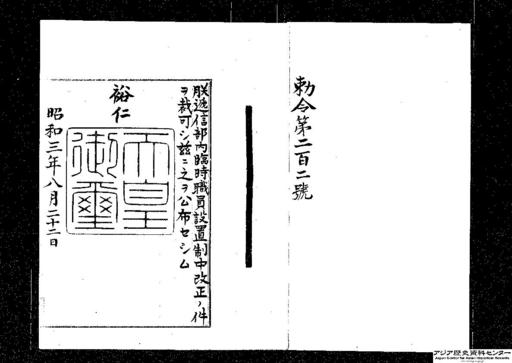 勅令第二百二號
朕遞信部内臨時職員設置制中改正ノ件
ヲ裁可シ茲ニ之ヲ公布セシム
裕仁
天皇
御璽
昭和三年八月二十二日
アジア歴史資料センター
Japan Center for Asian Historical Records